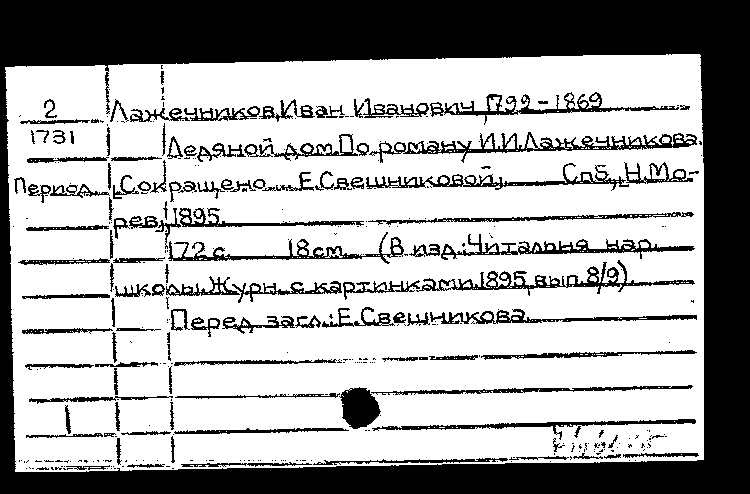 2 Лажечников, Иван Иванович, 1792-1869
1731 Ледяной дом. По роману И.И.Лажечникова.
Период. [Сокращено... Е.Свешниковой]. Спб., Н.Мо-
рев, 1895.
172 с. 18 см. (В изд.: Читальня нар.
школы. Журн. с картинками. 1895, вып. 8/9).
Перед загл.: Е.Свешникова.
1